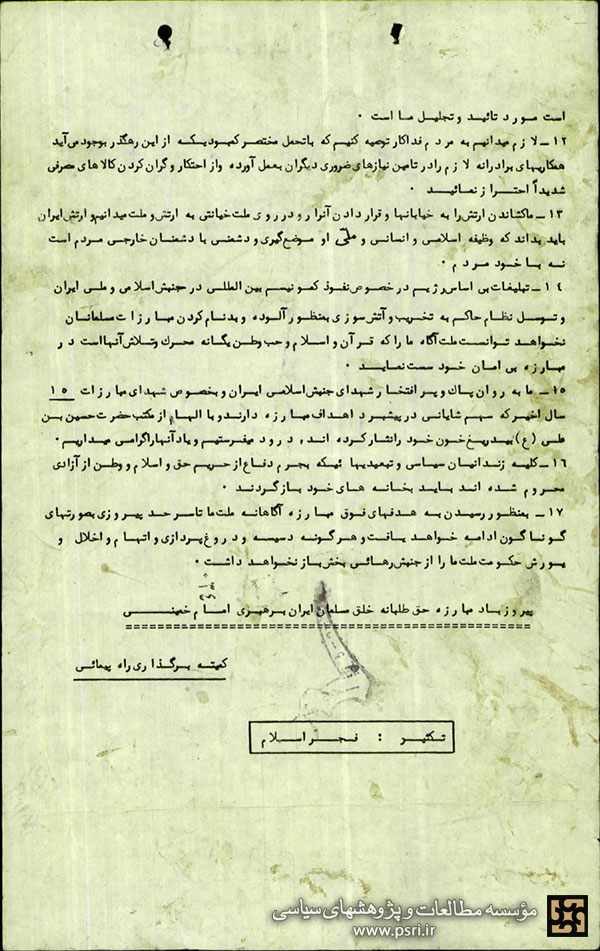 است مورد تائید و تجلیل ما است .
۱۲ـ لازم میدانیم به مردم فداکار توصیه کنیم که باتحمل مختصر کمبودیکه از این رهگذر بوجود می‌آید
همکاریهای برادرانه لازم رادر تامین نیازهای ضروری دیگران بعمل آورده واز احتکار و گران کردن کالاهای مصرفی
شدیداً احتراز نمائید .
۱۳ـ ماکشاندن ارتش را به خیابانها و قرار دادن آنرا رو در روی ملت خیانتی به ارتش و ملت میدانیم و ارتش ایران
باید بداند که وظیفه اسلامی و انسانی و ملّی او موضع‌گیری و دشمنی با دشمنان خارجی مردم است
نه با خود مردم .
۱۴ـ تبلیغات بی اساس رژیم در خصوص نفوذ کمونیسم بین المللی در جنبش اسلامی و ملی ایران
و توسل نظام حاکم به تخریب و آتش سوزی بمنظور آلوده و بدنام کردن مبارزات مسلمانان
نخواهد توانست ملت آگاه ما را که قرآن و اسلام و حب وطن یگانه محرک وتلاش آنها است در
مبارزه بی امان خود سست نماید .
۱۵ـ ما به روان پاک و پر افتخار شهدای جنبش اسلامی ایران و بخصوص شهدای مبارزات ۱۵
سال اخیر که سهم شایانی در پیشبرد اهداف مبارزه دارند و با الهام از مکتب حضرت حسین بن
علی (ع) بیدریغ خون خود را نثار کرده اند، درود میفرستیم و یاد آنها را گرامی میداریم .
۱۶ـ کلیه زندانیان سیاسی و تبعیدیها ئیکه بجرم دفاع از حریم حق و اسلام و وطن از آزادی
محروم شده اند باید بخانه های خود باز گردند .
۱۷ـ بمنظور رسیدن به هدفهای فوق مبارزه آگاهانه ملت ما تا سر حد پیروزی بصورتهای
گوناگون ادامه خواهد یافت و هر گونه دسیسه و دروغ پردازی و اتهام و اخلال و
یورش حکومت ملت ما را از جنبش رهائی بخش باز نخواهد داشت .
پیروزباد مبارزه حق طلبانه خلق مسلمان ایران برهبری امام خمینی
کمیته برگذاری راه پیمائی
تکثیر : فجر اسلام
مؤسسه مطالعات و پژوهشهای سیاسی
www.psri.ir